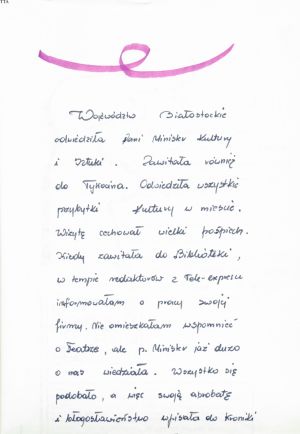 Województwo Białostockie
odwiedziła Pani Minister Kultury
i Sztuki. Zawitała również
do Tykocina. Odwiedziła wszystkie
przybytki Kultury w mieście.
Wizytę cechował wielki pośpiech.
Kiedy zawitała do Biblioteki,
w tempie redaktorów z Tele-expresu
informowałam o pracy swojej
firmy. Nie omieszkałam wspomnieć
o Teatrze, ale p. Minister już dużo
o nas wiedziała. Wszystko się
podobało, a więc swoją aprobatę
i błogosławieństwo wpisała do Kroniki